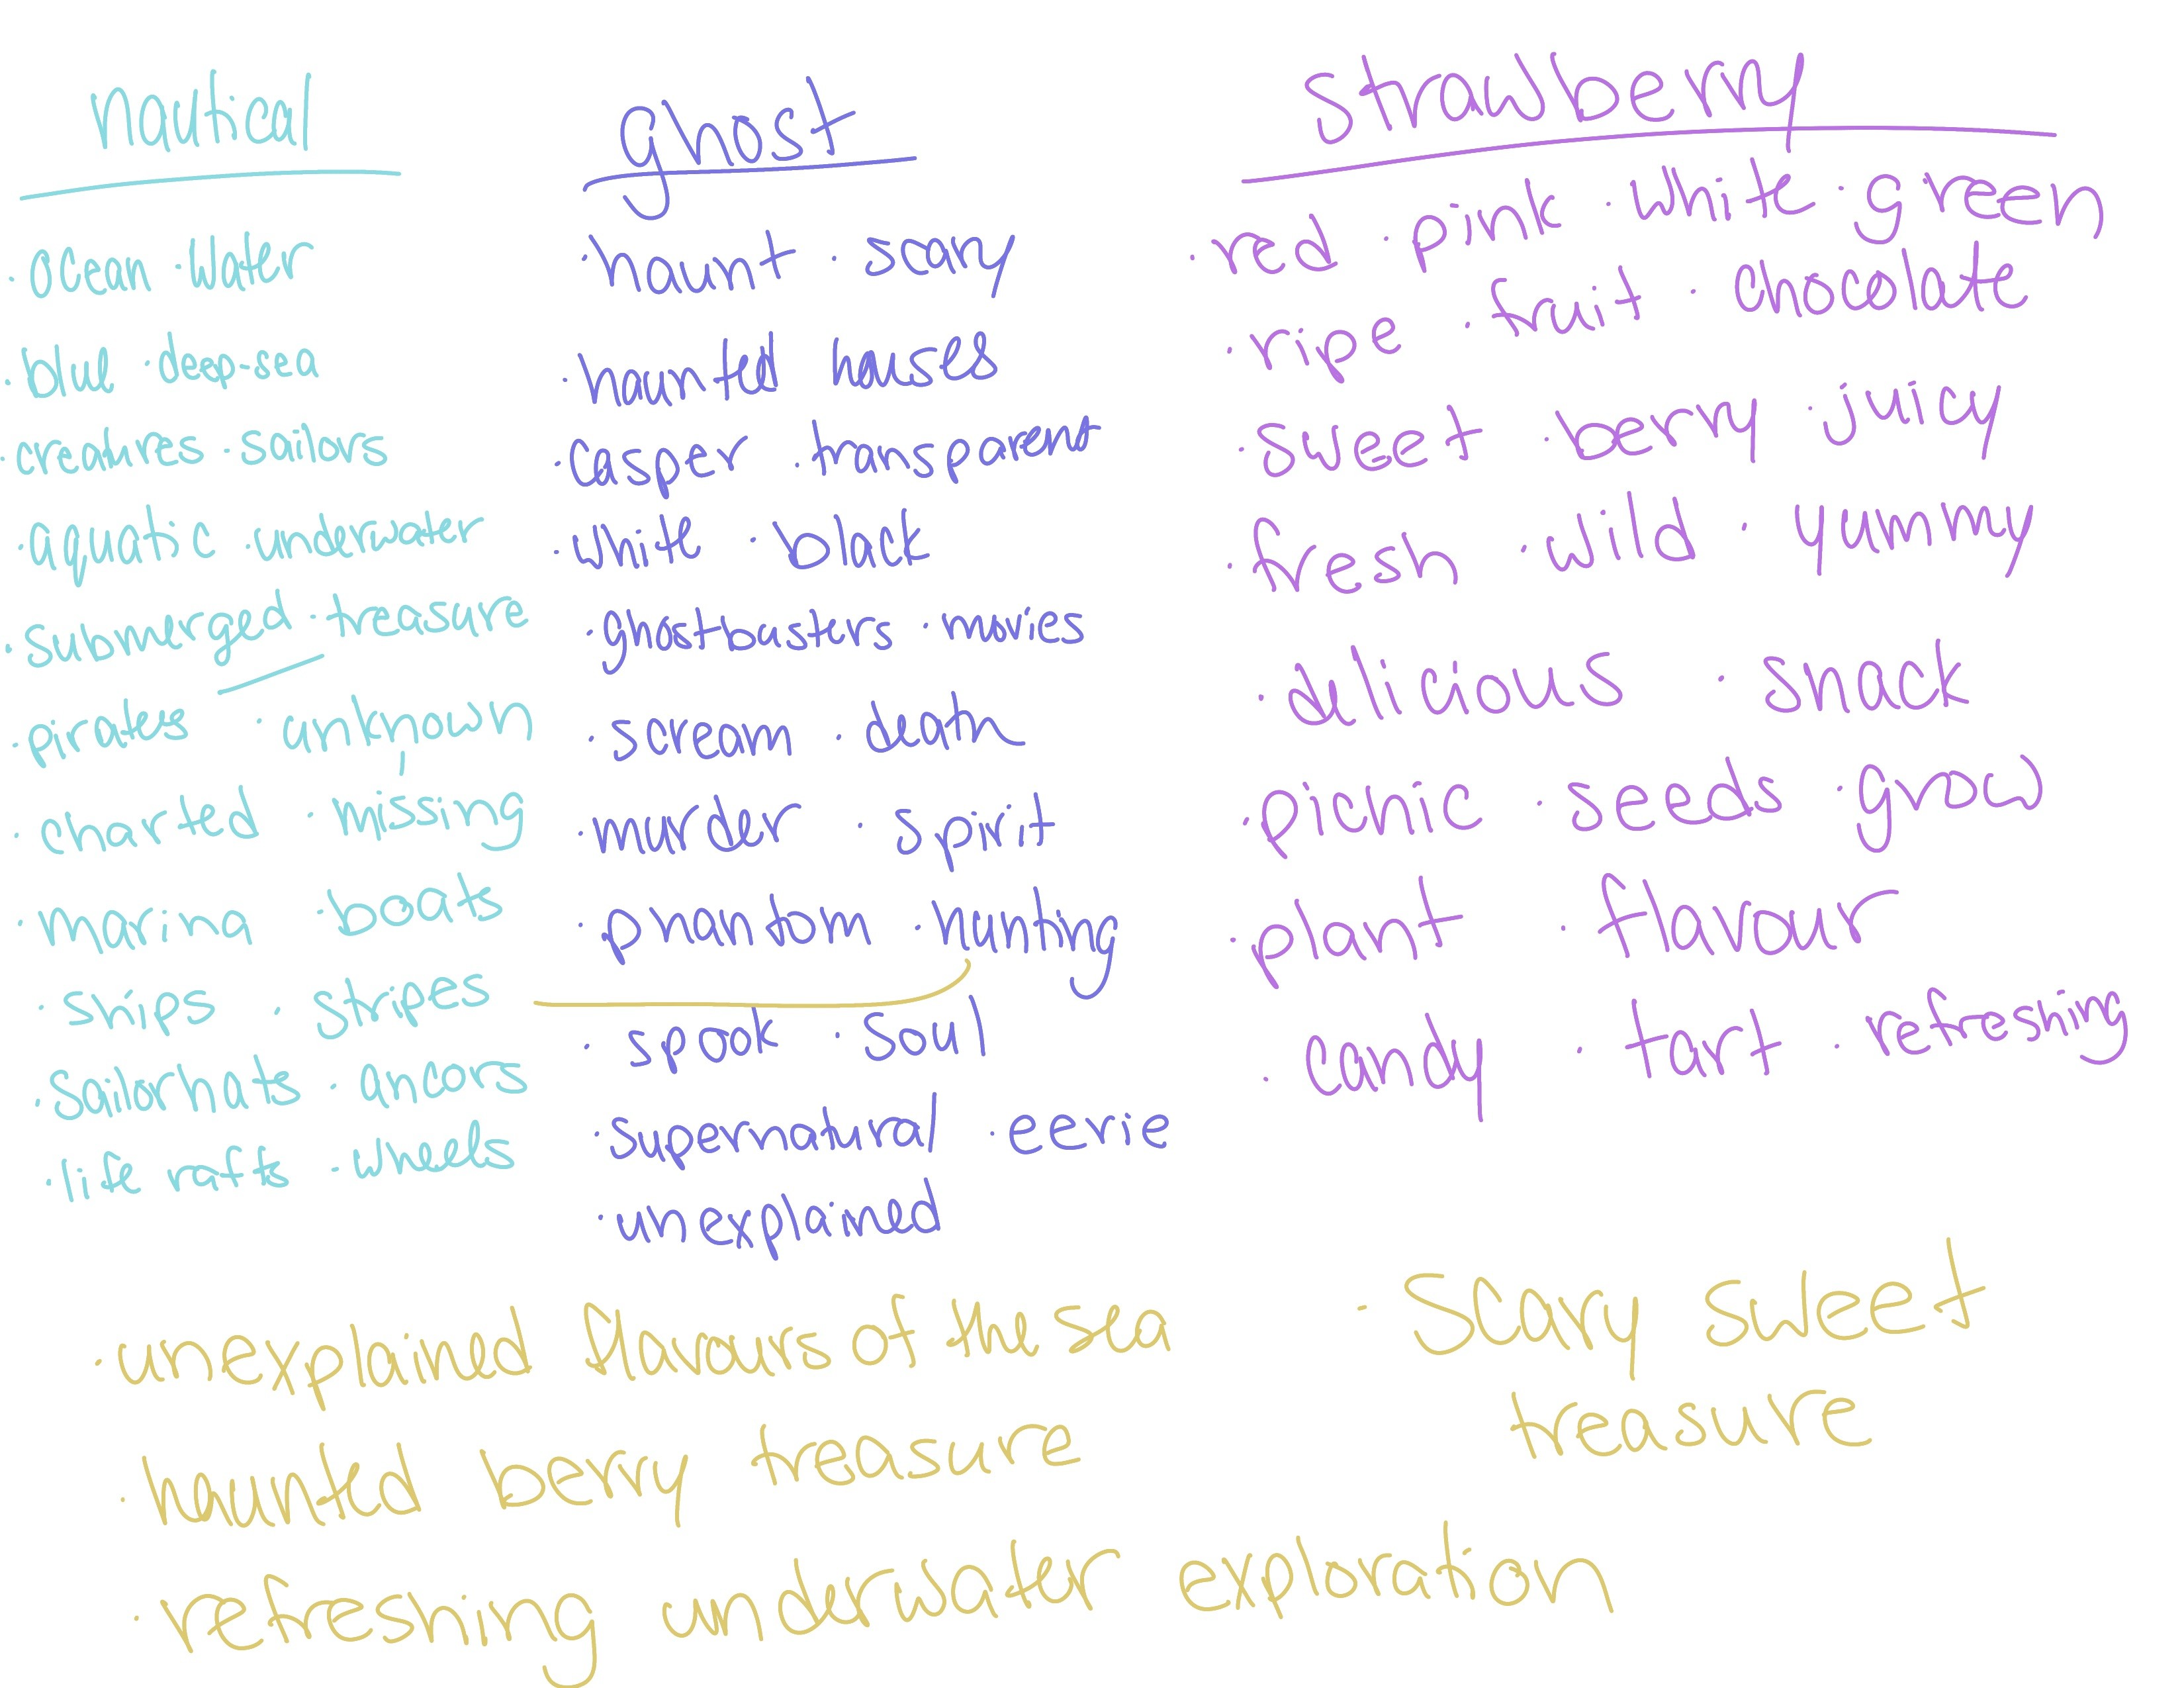 nautical
· ocean · water
· blue · deep-sea
· creatures · sailors
· aquatic · underwater
· submerged · treasure
· pirates · unknown
· charted · missing
· marina · boats
· ships · stripes
· sailorhats · ancors
· life rafts · wheels
ghost
· haunt · scary
· haunted houses
· casper · transparent
· white · black
· ghostbusters · movies
· scream · death
· murder · spirit
· phantom · hunting
· spook · soul
· supernatural · eerie
· unexplained
strawberry
· red · pink · white · green
· ripe · fruit · chocolate
· sweet · berry · juicy
· fresh · wild · yummy
· delicious · snack
· picnic · seeds · grow
· plant · flavour
· candy · tart · refreshing
· unexplained flavours of the sea
· scary sweet
treasure
· haunted berry treasure
· refreshing underwater exploration